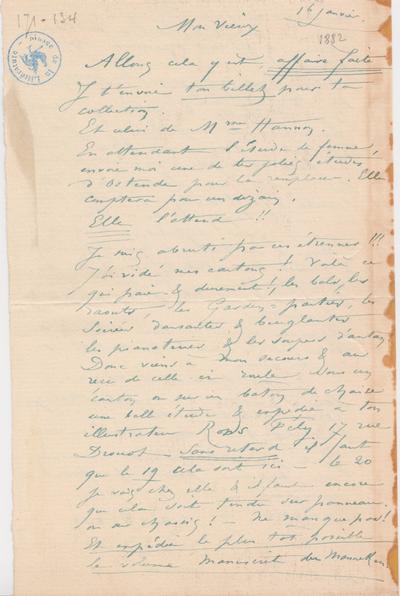 171-134
16 Janvier.
1882
Mon vieux
Musée de la Littérature
Allons cela y est, affaire faite
Je t'envoie ton billet pour ta
collection.
Et celui de Mme Hannon.
En attendant l'étude de femme,
envoie moi une de tes jolies études
d'Ostende pour la remplacer. Elle
comptera pour un dizain.
Elle l'attend !!
Je suis abruti par ces étrennes !!!
J'ai vidé mes cartons ! Voilà ce
qui paie & durement ! les bals, les
raouts, les Gardes-parties, les
soirées dansantes &
les pianoteuses & les soupers d'antan
Donc viens à mon secours & au
reçu de celle-ci roule sous un
carton ou sur un baton de chaise
une belle étude & expédie à ton
illustrateur Rops Fély 17 rue
Drouot - Sans retard il faut
que le 19 cela soit ici - le 20
je vais chez elle & il faut encore
que cela soit tendu sur panneau
ou au chassis ! - Ne manque pas !
Et expédie le plus tot possible
le volume manuscrit des Mannekens